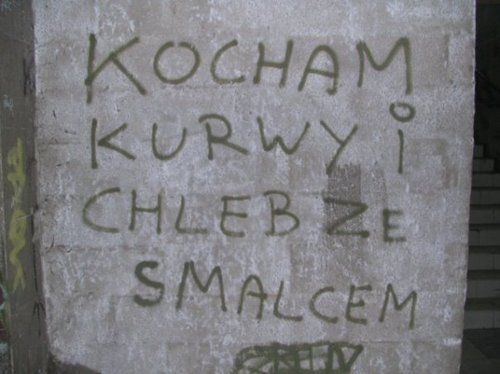 KOCHAM
KURWY i
CHLEB ZE
SMALCEM